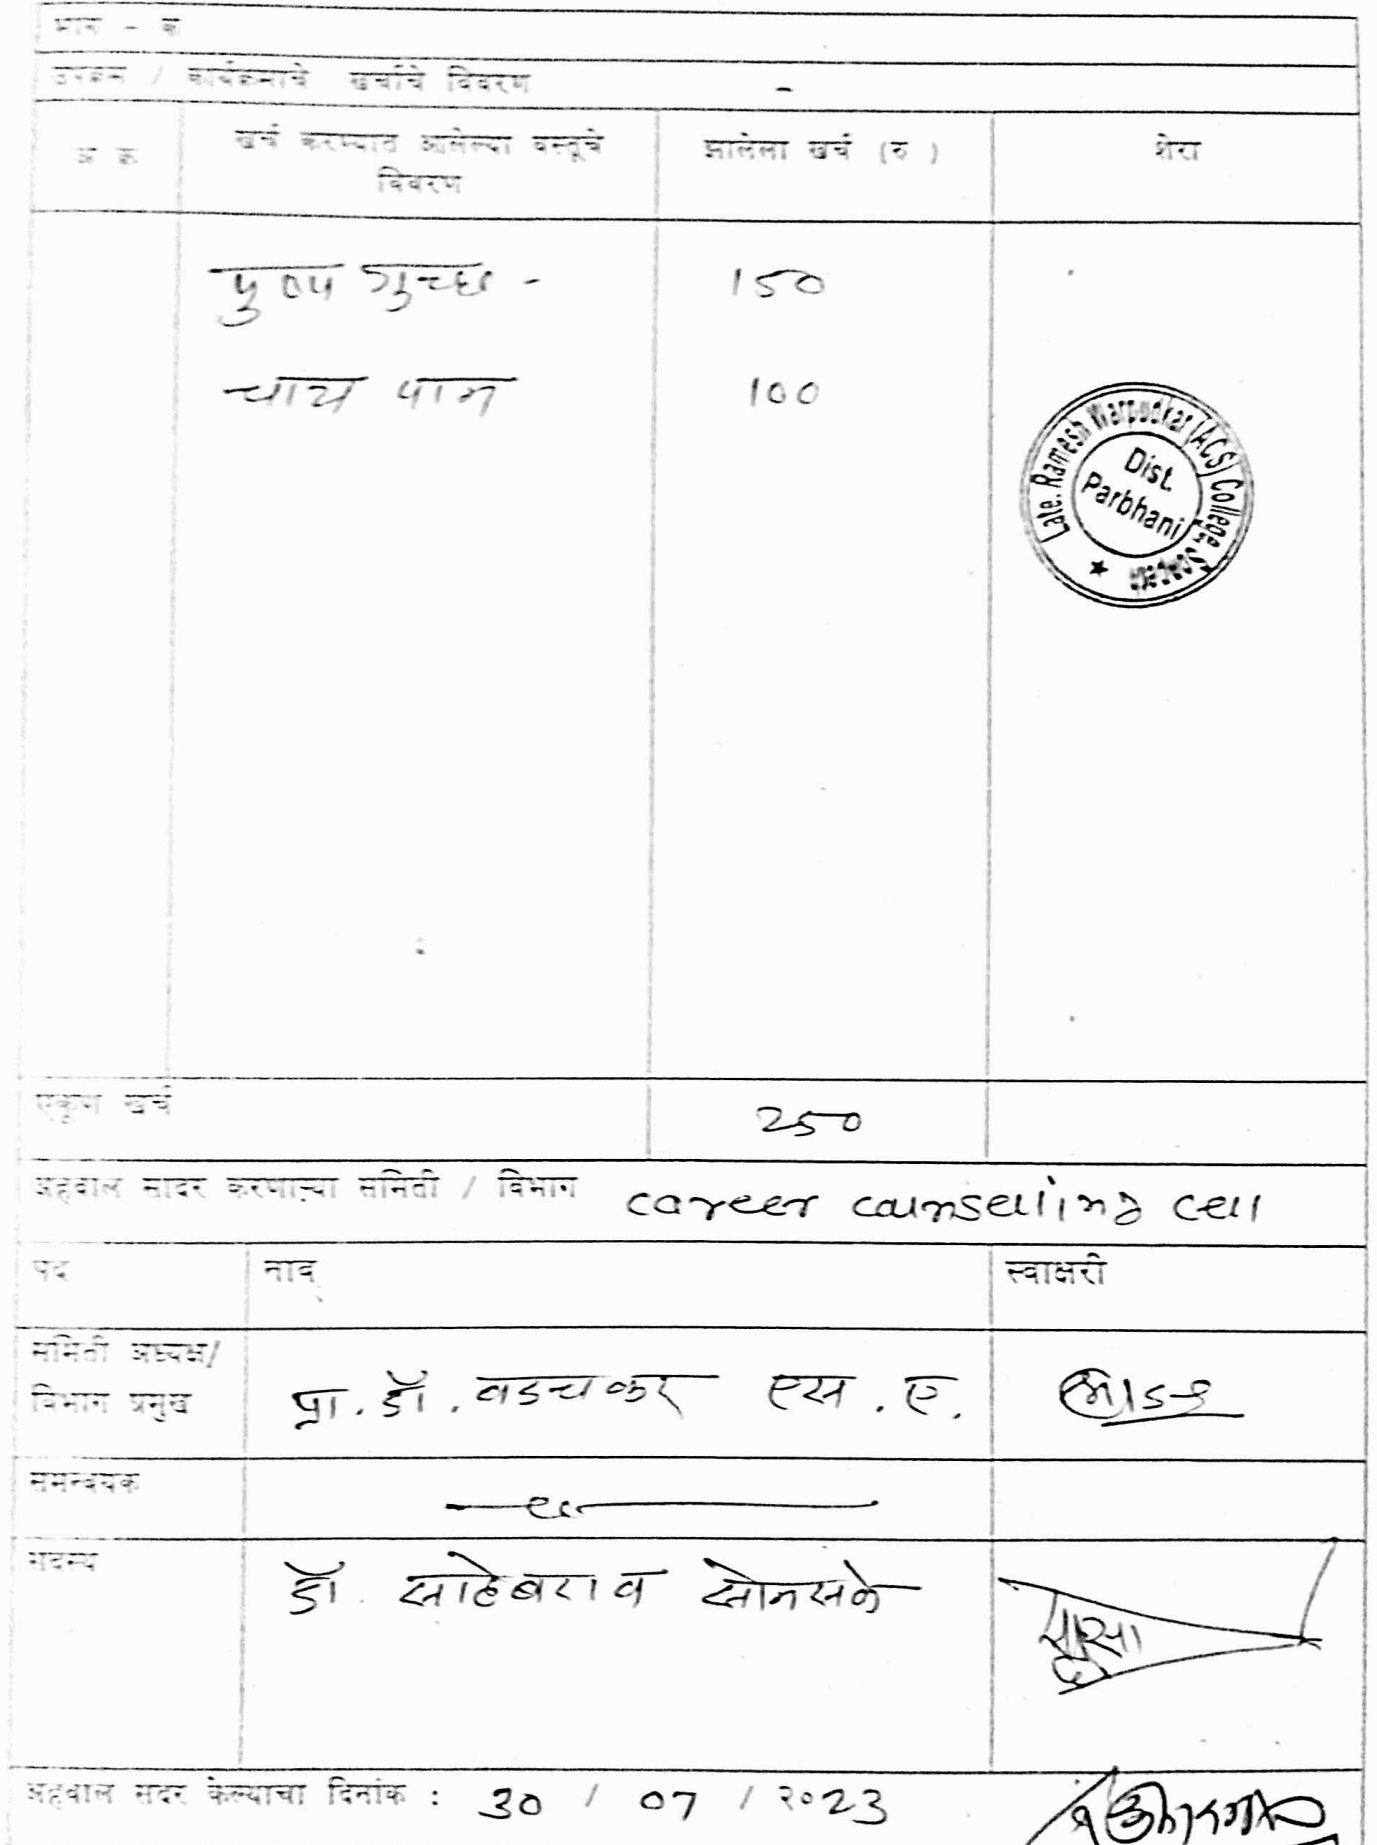 भाग - क
उपक्रम / कार्यक्रमाचे खर्चाचे विवरण -
अ क्र खर्च करण्यात आलेल्या वस्तूचे विवरण झालेला खर्च (रु ) शेरा
पुष्प गुच्छ - 150
चाय पान 100
Late. Ramesh Warpudkar (ACS) College, Sonpeth
Dist.
Parbhani
एकूण खर्च 250
अहवाल सादर करणाऱ्या समिती / विभाग career counselling cell
पद नाव् स्वाक्षरी
समिती अध्यक्ष/
विभाग प्रमुख प्रा. डॉ. वडचकर एस. ए.
समन्वयक
सदस्य डॉ. साहेबराव सोनसळे
अहवाल सदर केल्याचा दिनांक : 30 / 07 / २०23